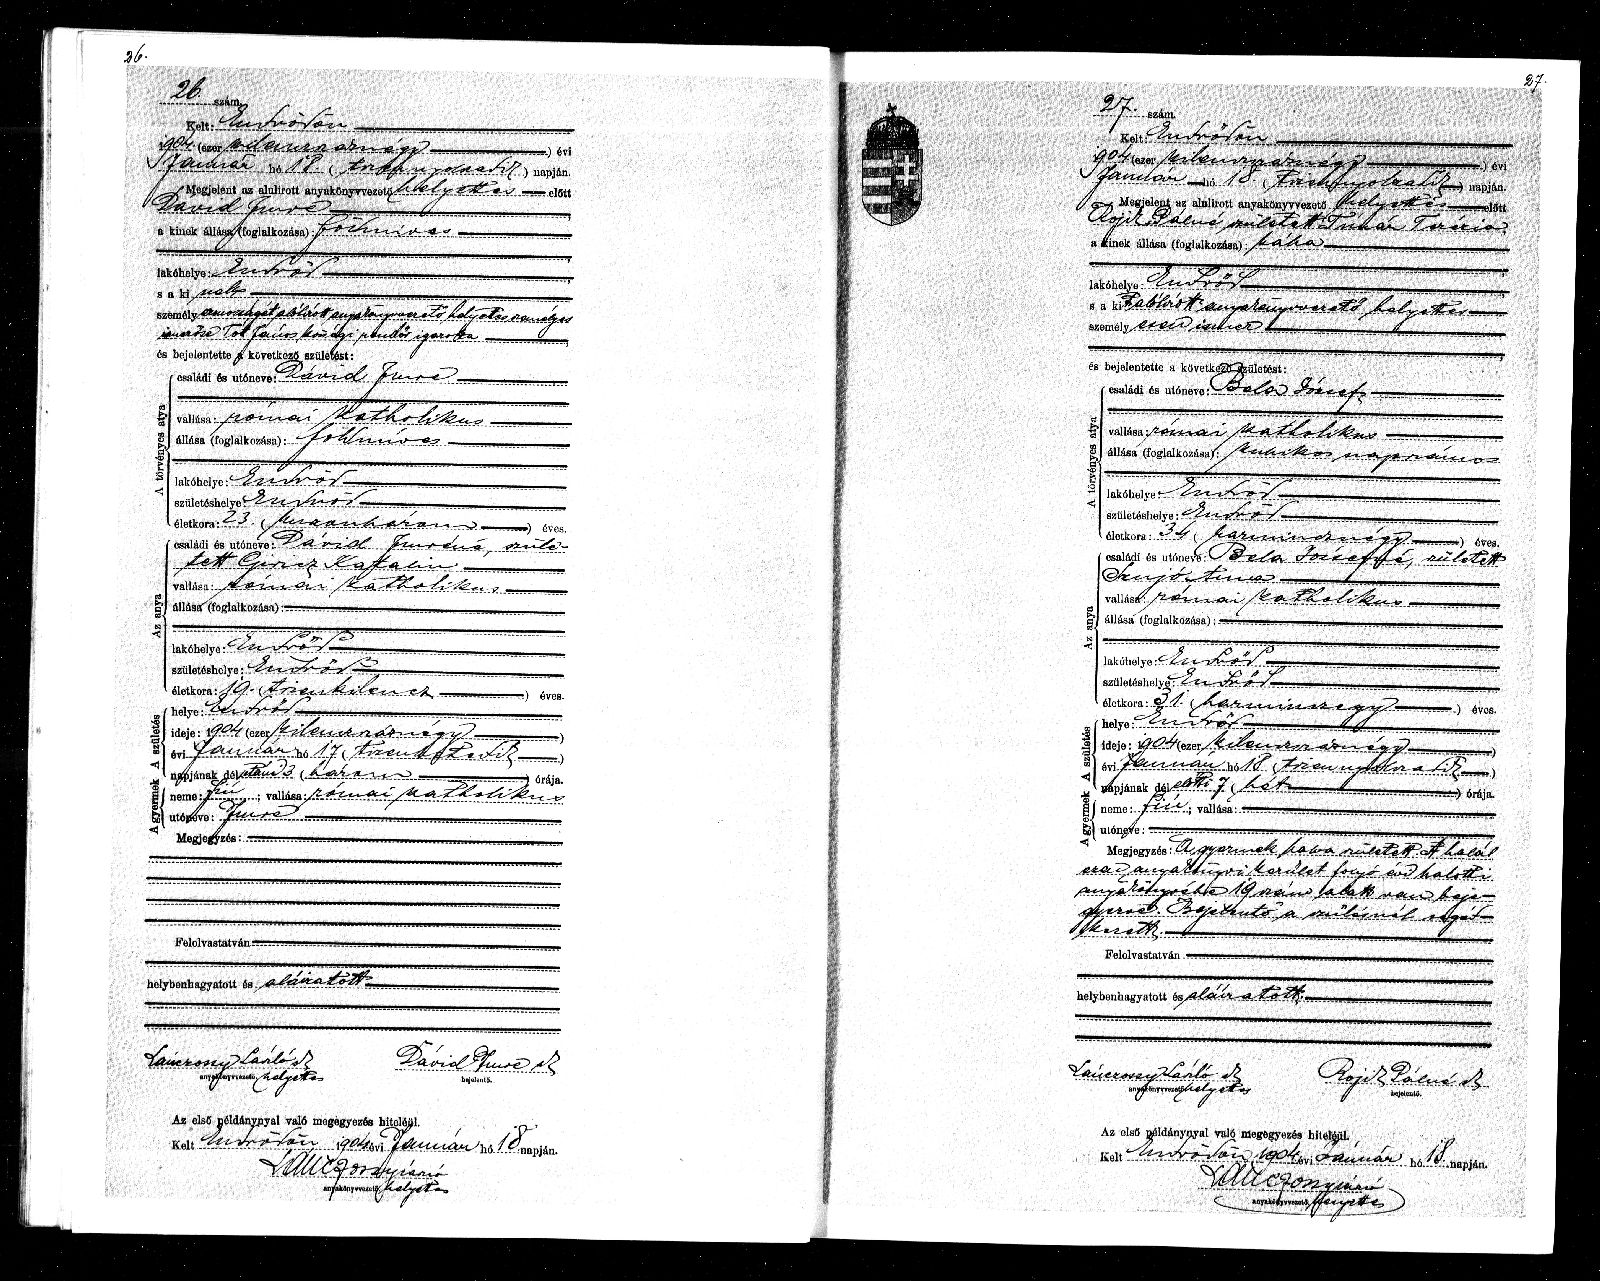 26.
26. szám.
Kelt: Endrődön
1904 (ezer kilenczszáznégy) évi
Január hó 18. (tizennyolczadik) napján.
Megjelent az alulirott anyakönyvvezető helyettes előtt
Dávid Imre
a kinek állása (foglalkozása): földmíves
lakóhelye: Endrőd
s a ki, nek
személy azonosságát alólírott anyakönyvvezető helyettes személyes
ismerőse Tót János községi rendőr igazolta
és bejelentette a következő születést:
A törvényes atya
családi és utóneve: Dávid Imre
vallása: római katholikus
állása (foglalkozása): földmíves
lakóhelye: Endrőd
születéshelye: Endrőd
életkora: 23. (huszonhárom) éves.
Az anya
családi és utóneve: Dávid Imréné, szüle-
tett Katalin
vallása: római katholikus
állása (foglalkozása):
lakóhelye: Endrőd
születéshelye: Endrőd
életkora: 19. (tizenkilencz) éves.
A születés
helye: Endrőd
ideje: 1904 (ezer kilenczszáznégy)
évi Január hó 17 (tizenhetedik)
napjának dél után 3. (három) órája.
A gyermek
neme: fiú; vallása: római katholikus
utóneve: Imre
Megjegyzés:
Felolvastatván
helybenhagyatott és aláiratott
Lánczossy László sk Dávid Imre sk
anyakönyvvezető helyettes bejelentő.
Az első példánynyal való megegyezés hiteléül.
Kelt Endrődön 1904 évi Január hó 18 napján.
anyakönyvvezető helyettes
27.
27. szám.
Kelt: Endrődön
1904 (ezer kilenczszáznégy) évi
Január hó 18. (tizennyolczadik) napján.
Megjelent az alulirott anyakönyvvezető helyettes előtt
Rojik Pálné született Timár Terézia
a kinek állása (foglalkozása): bába
lakóhelye: Endrőd
s a kit alólírott anyakönyvvezető helyettes
személyesen ismer
és bejelentette a következő születést:
A törvényes atya
családi és utóneve: Bela József
vallása: római katholikus
állása (foglalkozása): kubikos napszámos
lakóhelye: Endrőd
születéshelye: Endrőd
életkora: 34 (harmincznégy) éves.
Az anya
családi és utóneve: Bela Józsefné, született
Szujó Anna
vallása: római katholikus
állása (foglalkozása):
lakóhelye: Endrőd
születéshelye: Endrőd
életkora: 31. (harminczegy) éves.
A születés
helye: Endrőd
ideje: 1904 (ezer kilenczszáznégy)
évi Január hó 18 (tizennyolczadik)
napjának dél előtti 7 (hét) órája.
A gyermek
neme: fiú; vallása:
utóneve:
Megjegyzés: A gyermek halva született. A halál-
eset anyakönyvi kerület folyó évi halotti
anyakönyvébe 19 szám alatt van beje-
gyezve. Bejelentő a szülésnél segéd-
kezett.
Felolvastatván
helybenhagyatott és aláiratott.
Lánczossy László sk Rojik Pálné sk
anyakönyvvezető helyettes bejelentő.
Az első példánynyal való megegyezés hiteléül.
Kelt Endrődön 1904 évi Január hó 18 napján.
anyakönyvvezető helyettes